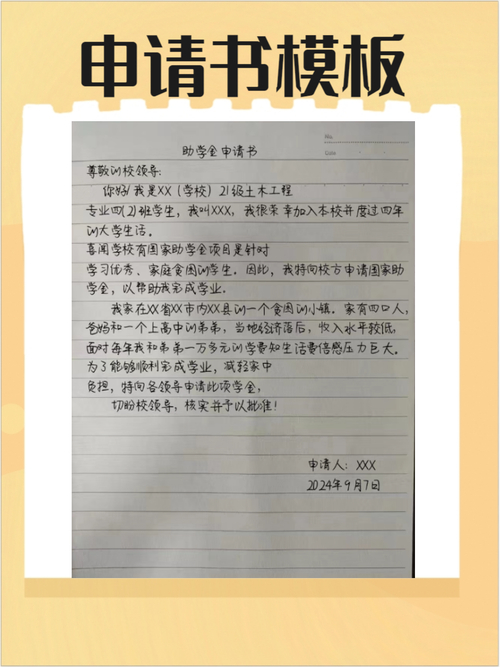 申请书模板
No.
Date
助学金申请书
尊敬训校领导:
你好!我是XX(学校)21级土木工程
专业四(2)班学生,我叫XXX,我很荣幸加入本校并度过四年
训大学生活。
喜闻学校有国家助学金项目是针对
学习优秀、家庭贫困训学生。因此,我特向校方申请国家助
学金,以帮助我完成学业。
我家在XX省XX市内XX县训一个贫困训小镇。家有四口人,
爸妈和一个上高中训弟弟,当地经济落后,收入水平较低,
面对每年我和弟弟一万多元训学费和生活费倍感压力巨大。
为了能够顺利完成学业,减轻家中
负担,特向各领导申请此项学金,
切盼校领导,核实并予以批准!
申请人:XXX
2024年9月7日